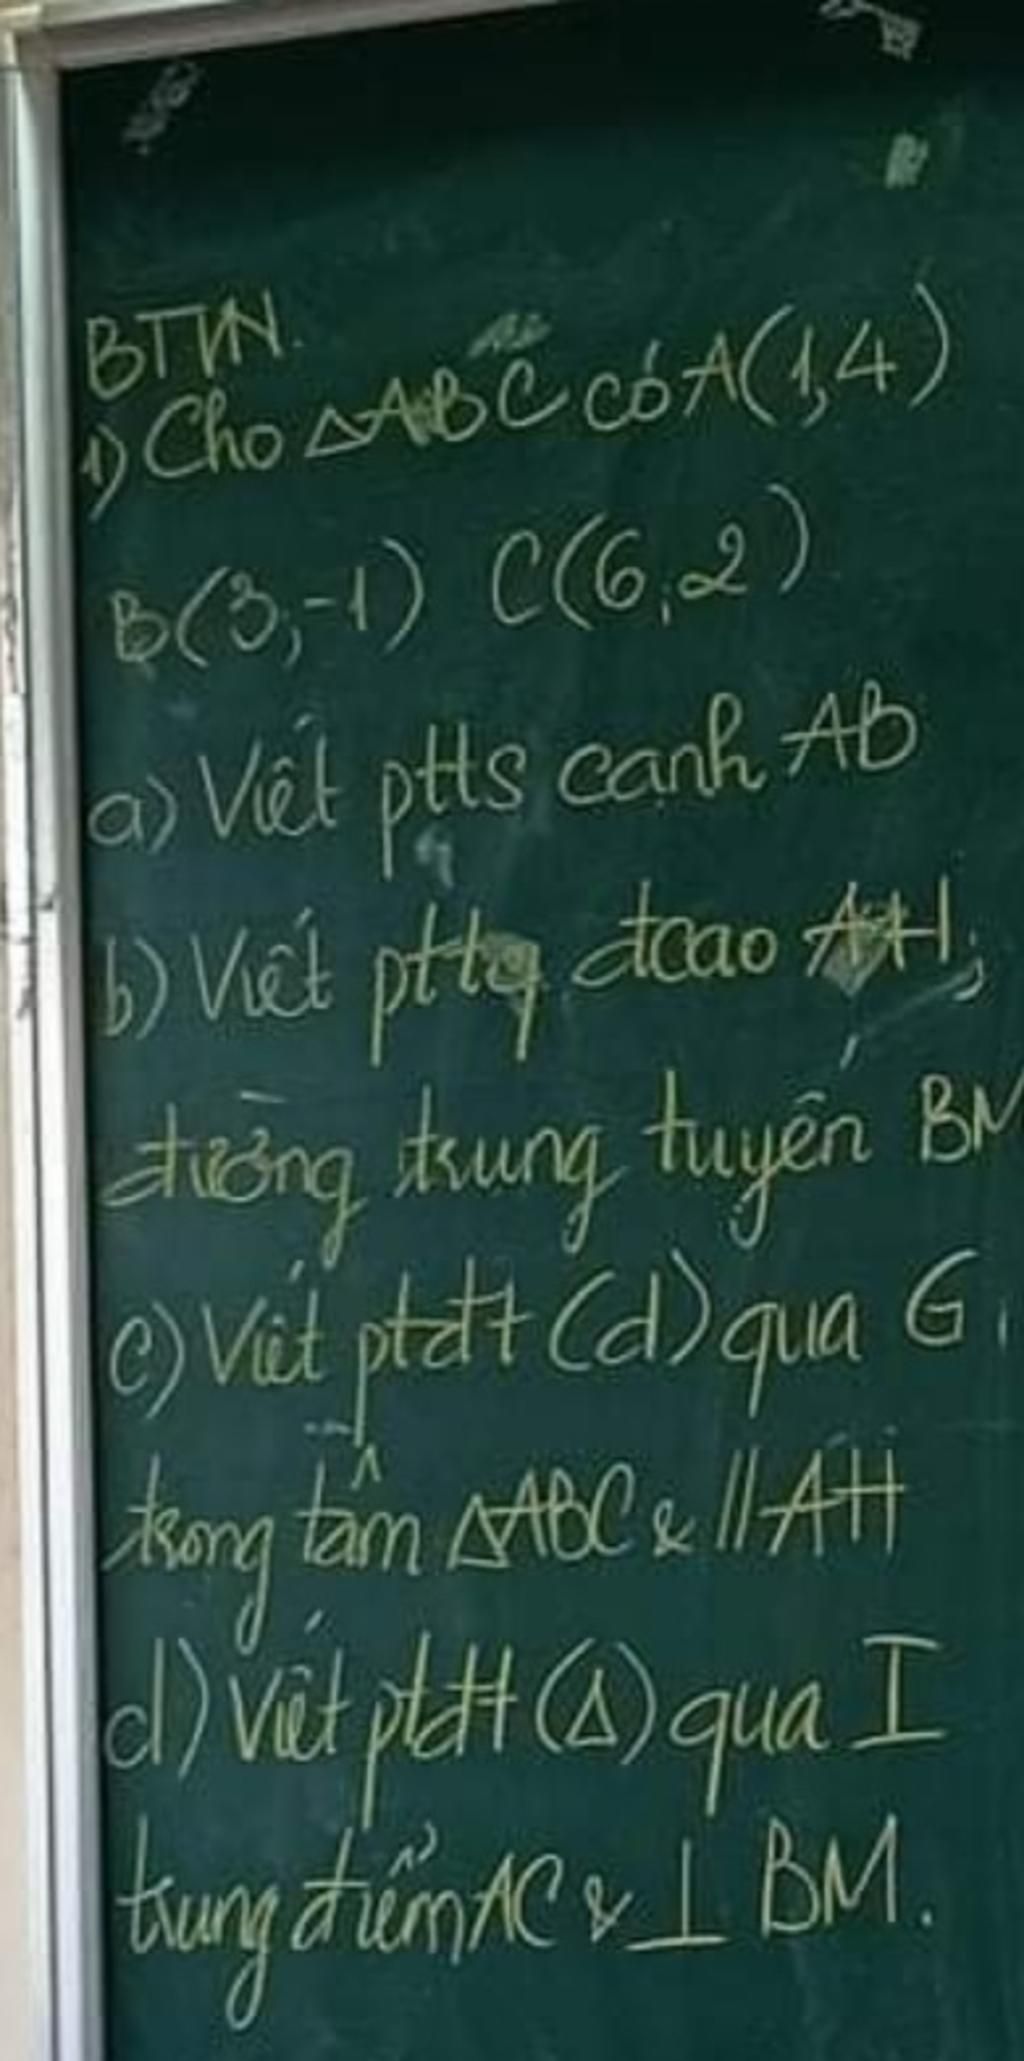 BTVN.
1) Cho ΔABC có A(1,4)
B(3;-1) C(6,2)
a) Viết ptts cạnh AB
b) Viết pttq đcao AH;
đường trung tuyến BM
c) Viết ptđt (d) qua G
trọng tâm ΔABC & // AH
d) Viết ptđt (Δ) qua I
trung điểm AC & ⊥ BM.